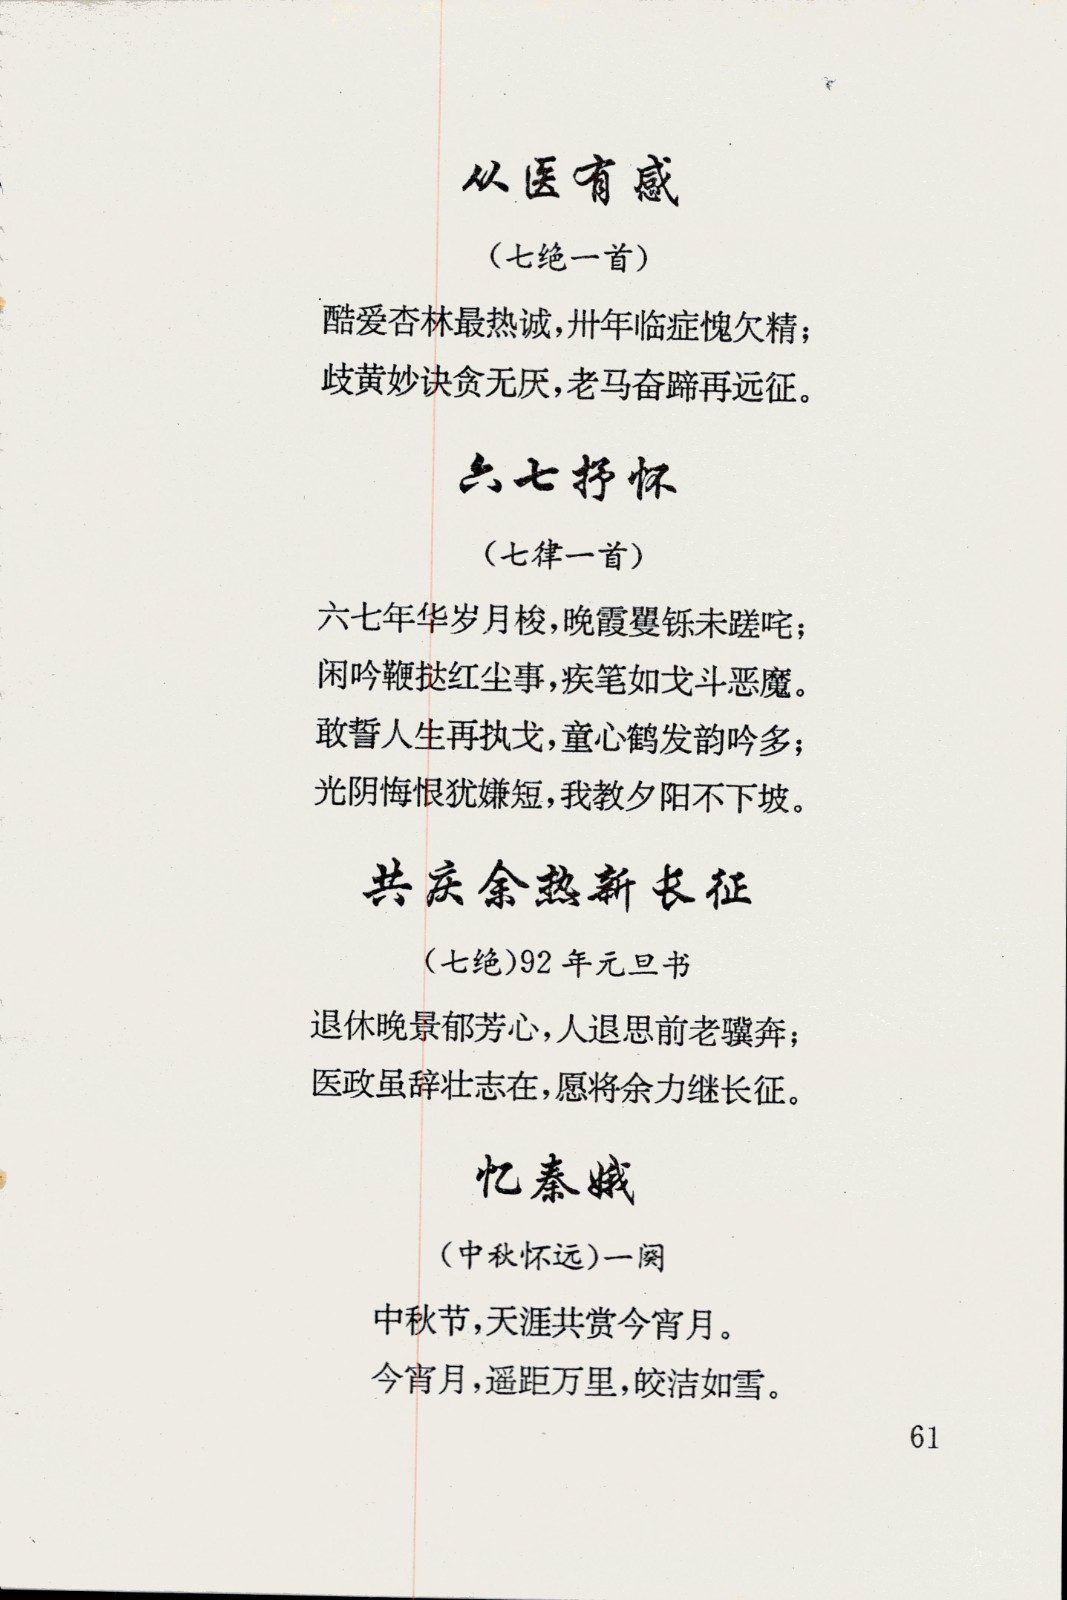 从医有感
（七绝一首）
酷爱杏林最热诚，卅年临症愧欠精；
歧黄妙诀贪无厌，老马奋蹄再远征。
六七抒怀
（七律一首）
六七年华岁月梭，晚霞矍铄未蹉咤；
闲吟鞭挞红尘事，疾笔如戈斗恶魔。
敢誓人生再执戈，童心鹤发韵吟多；
光阴悔恨犹嫌短，我教夕阳不下坡。
共庆余热新长征
（七绝）92 年元旦书
退休晚景郁芳心，人退思前老骥奔；
医政虽辞壮志在，愿将余力继长征。
忆秦娥
（中秋怀远）一阕
中秋节，天涯共赏今宵月。
今宵月，遥距万里，皎洁如雪。
61